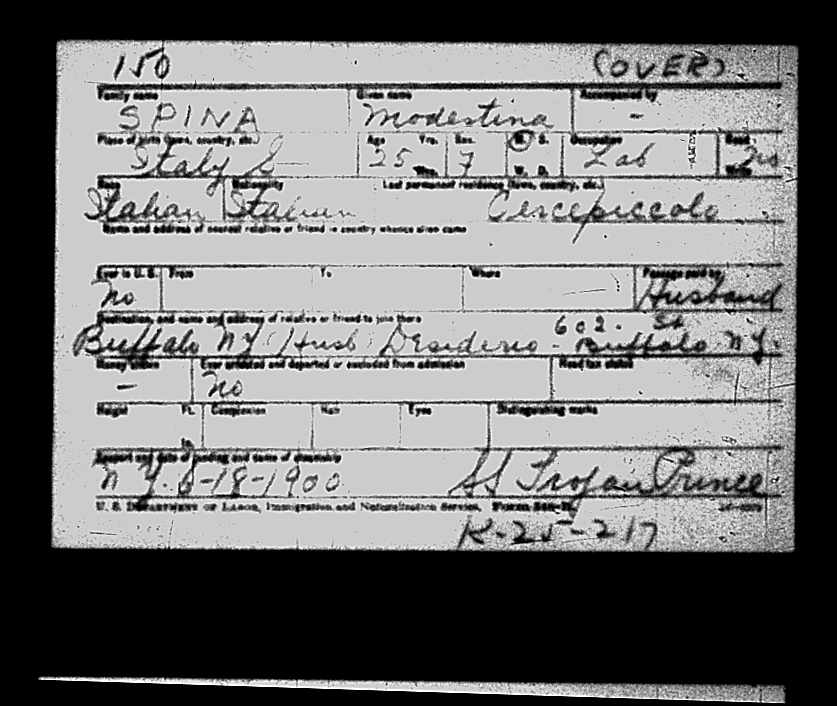 150 (OVER)
Family name Given name Accompanied by
SPINA Modestina -
Place of birth (town, country, etc.) Age Yrs. Sex M. S. Occupation Read
Italy S 25 Mos. F W. D. Lab Write No
Race Nationality Last permanent residence (town, country, etc.)
Italian Italian Cercepiccola
Name and address of nearest relative or friend in country whence alien came
Ever in U. S. From To Where Passage paid by
No Husband
Destination, and name and address of relative or friend to join there
Buffalo NY Husb Desiderio - 602. St Buffalo N.Y.
Money shown Ever arrested and deported or excluded from admission Head tax status
- No
Height Ft. Complexion Hair Eyes Distinguishing marks
In.
Seaport and date of landing and name of steamship
N Y. 5-18-1900 SS Trojan Prince
U. S. DEPARTMENT OF LABOR, Immigration and Naturalization Service. Form
K-25-217